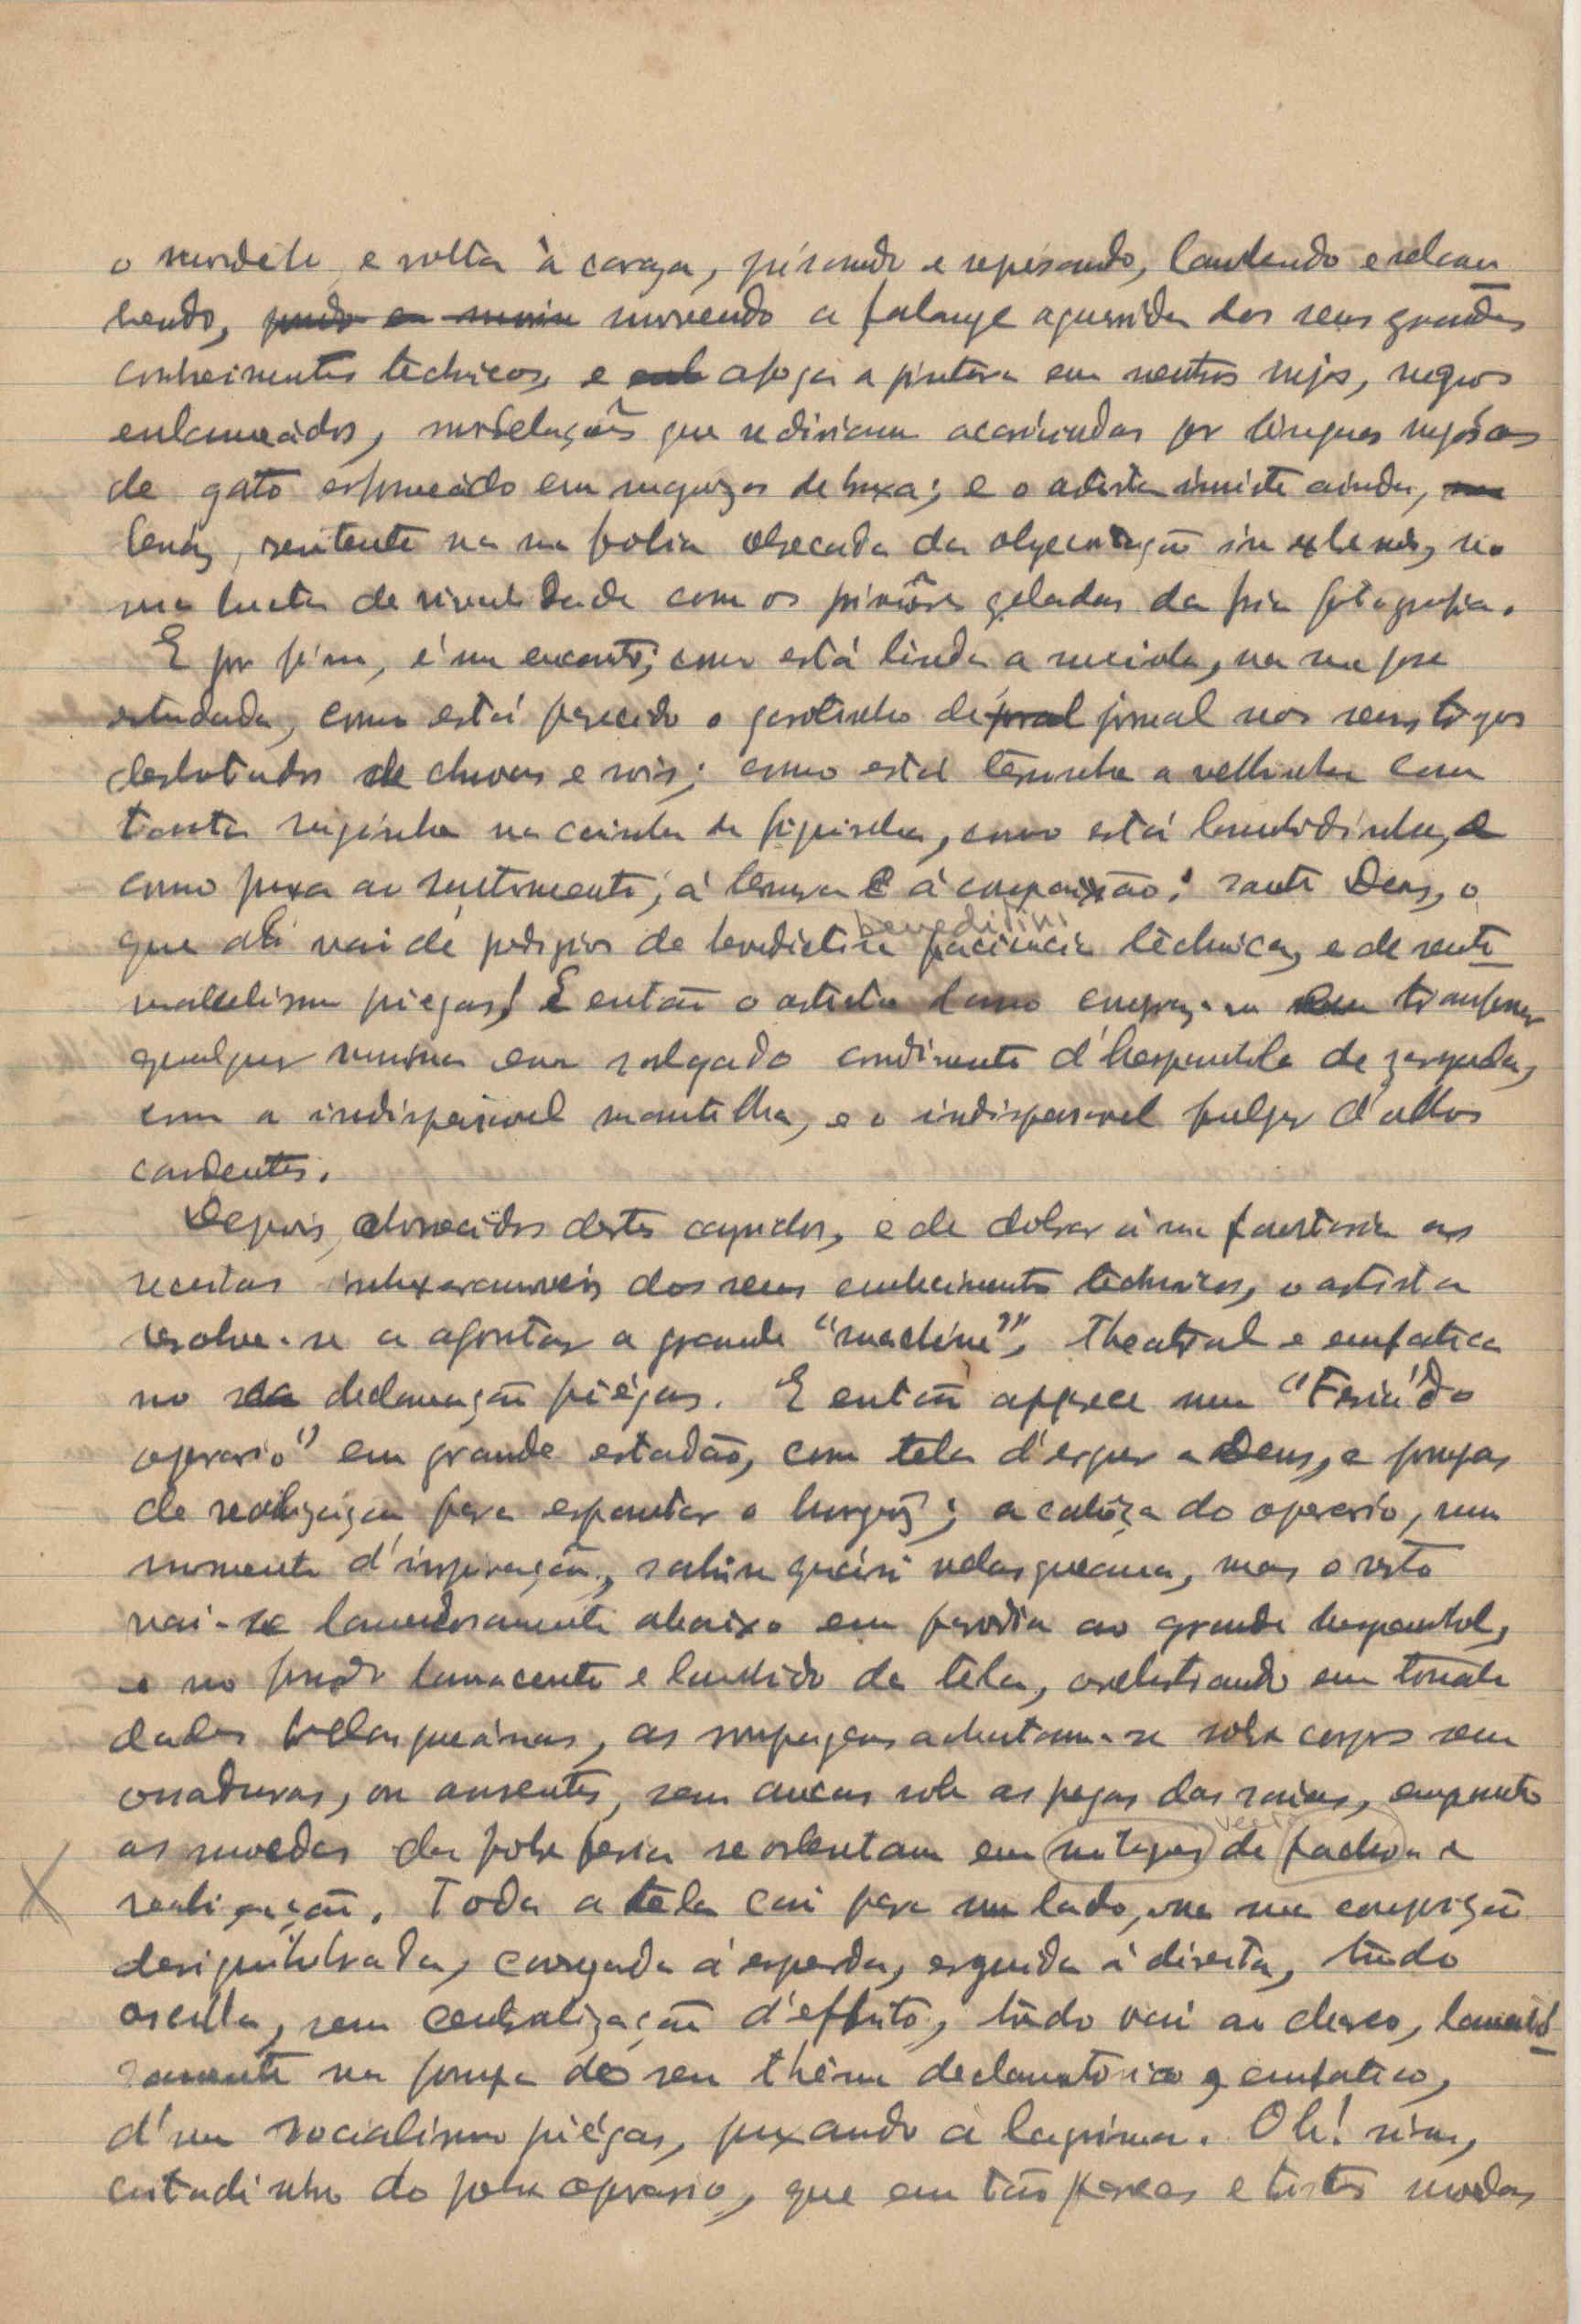 o modelo, e volta à carga, pisando e repisando, lambendo e relam
bendo, movendo a falange aguerrida dos seus grandes
conhecimentos téchnicos, e afoga a pintura em neutros sujos, negros
enlameádos, modelações que se diriam acariciadas por linguas rugósas
de gato esfomeádo em de ; e o artista insiste ainda,
tenáz, na sua folia obsecada da, na
sua lucta de rivalidade com os geladas da fria fotografia.
E por fim, é um encanto; como está linda a, na sua pose
estudada, como está parecido o garotinho de jornal nos seus trajos
desbotados de chuvas e sois; como está a velhinha com
tanta ruguinha na carinha de, como está lambidinha, e
como puxa ao sentimento, á ternura e á compaixão; santo Deus, o
que ali vai de prodigios de benedictina beneditina paciencia téchnica, e de senti
mentalismo piegas! E então o artista transformar
qualquer menina em salgado condimento d'hespanhola de zarzuela,
com a indispensavel mantilha, e o indispensavel fulgor d'olhos
candentes.
Depois, destes, e de dobrar á sua fantasia as
receitas dos seus conhecimentos téchnicos, o artista
resolve-se a afrontar a grande "machine", theatral e emfatica
na declamação piégas. E então apparece um "Feria do
operario" em grande estadão, com tela d'erguer a Deus, e pompas
de realização para espantar o burguez; a cabêça do operario, num
momento d'inspiração, sahiu quási velasqueana, mas o resto
vai-se lamentosamente abaixo em parodia ao grande hespanhol,
e no fundo lamacento e lambido da tela, em tonali
dades velasqueánas, as roupagens achatam-se sobre corpos sem
ossaturas, ou ausentes, sem ancas sob as pregas das saias, emquanto
as moedas da pobre feria se ostentam em de e
realização. Toda a tela cai para um lado, na sua composição
desiquilibrada, carregada á esquerda, erguida á direita, tudo
oscilla, sem centralização d'effeito, tudo vai ao charco, lamentó
samente na pompa do seu thêma declamatorio e emfatico,
d'um socialismo piégas, puxando á lagrima. Oh! sim,
coitadinho do pobre operario, que em tão parcas e tristes moedas